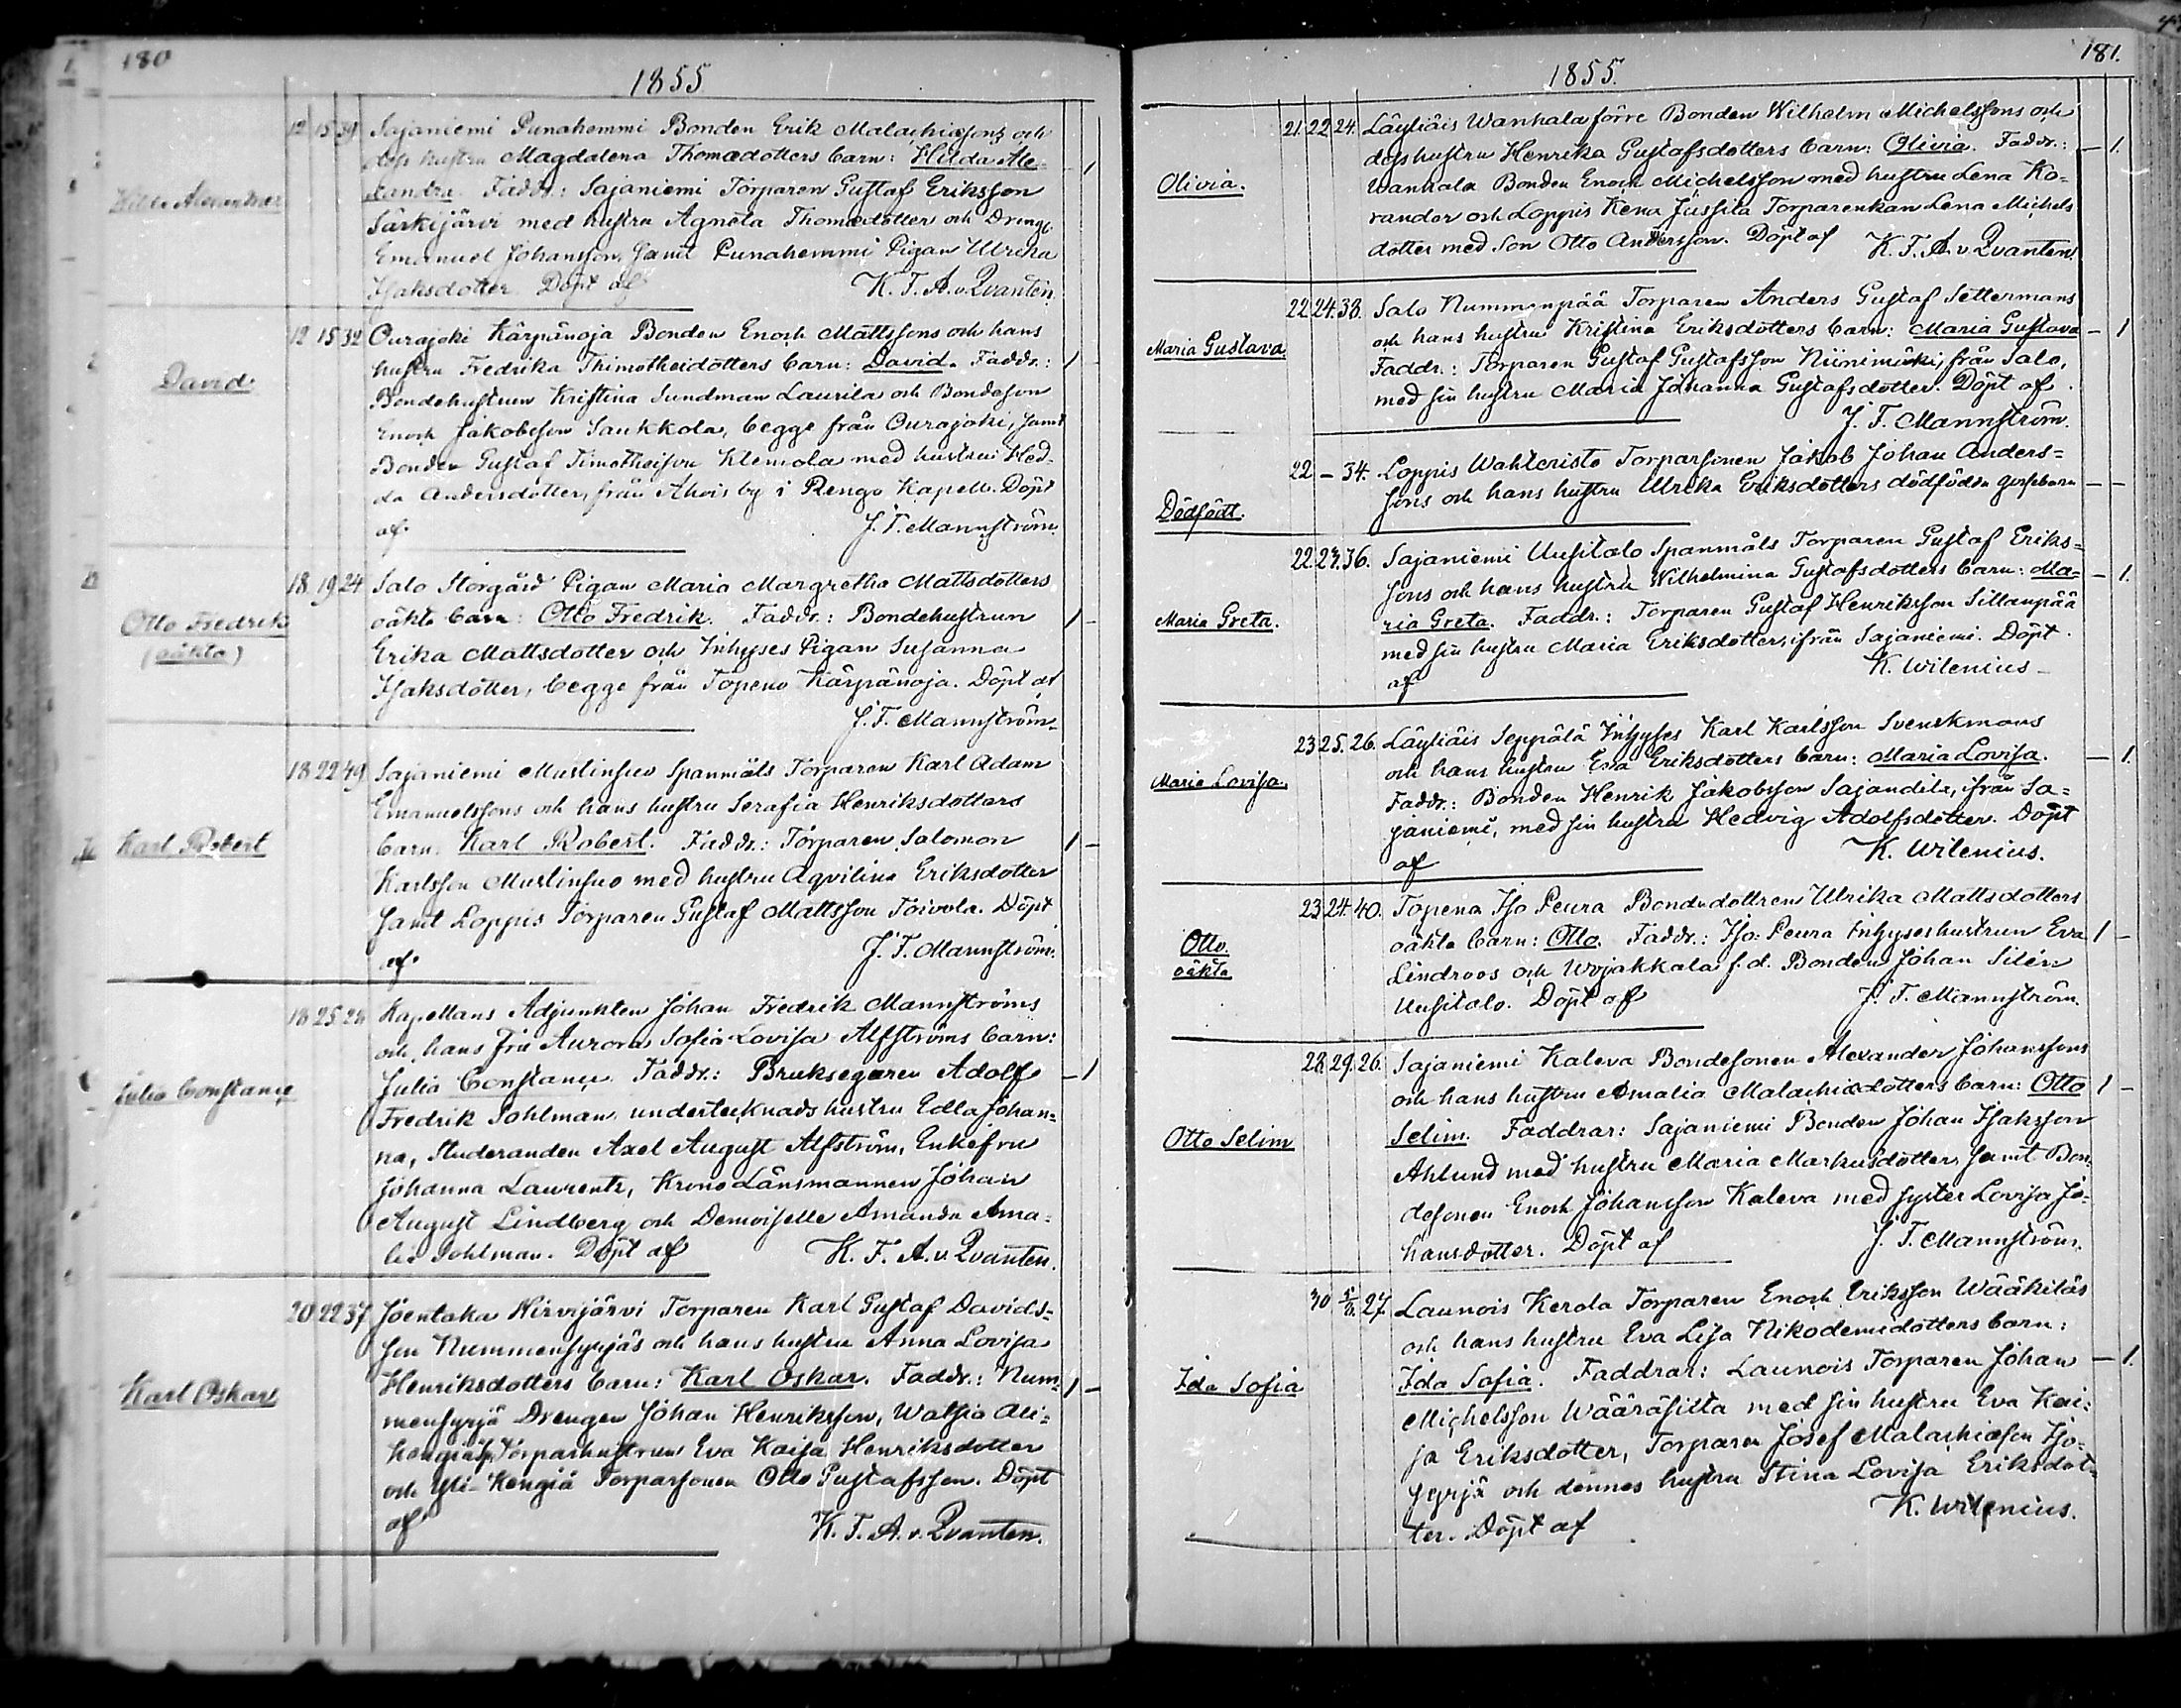 180
1855
Hilda Alexandra
12 15 39 Sajaniemi Punahemmi Bonden Erik Malachiæsons och
dess hustru Magdalena Thomædotters barn: Hilda Ale-
xandra. Faddr.: Sajaniemi Torparen Gustaf Eriksson 1
Särkijärvi med hustru Agneta Thomædotter och Drenge.
Emanuel Johansson, samt Punahemmi Pigan Ulrika
Isaksdotter. Döpt af K. F. A. v. Qvanten.
David
12 15 32 Ourajoki Kärpänoja Bonden Enoch Mattssons och hans
hustru Fredrika Thimotheidotters barn: David. Faddr.: 1
Bondehustrun Kristina Sundman Laurila och Bondeson
Enoch Jakobsson Saukkola, begge från Ourajoki, samt
Bonden Gustaf Timotheison Klemola med hustru Hed-
da Andersdotter, från Ahois by i Rengo Kapell. Döpt
af J. F. Mannström.
Otto Fredrik
(oäkta)
18 19 24 Salo Storgård Pigan Maria Margretha Mattsdotters
oäkta barn: Otto Fredrik. Faddr.: Bondehustrun 1 -
Erika Mattsdotter och Inhyses Pigan Susanna
Isaksdotter, begge från Topeno Kärpänoja. Döpt af
J. F. Mannström.
Karl Robert
18 22 49 Sajaniemi Mustinsuo Spanmåls Torparen Karl Adam
Emanuelssons och hans hustru Serafia Henriksdotters
barn: Karl Robert. Faddr.: Torparen Salomon 1 -
Karlsson Mustinsuo med hustru Aqvilina Eriksdotter
samt Loppis Torparen Gustaf Mattsson Toivola. Döpt
af J. F. Mannström.
Julia Constance
18 25 24 Kapellans Adjunkten Johan Fredrik Mannströms
och hans fru Aurora Sofia Lovisa Alfströms barn:
Julia Constance. Faddr.: Bruksegaren Adolf - 1
Fredrik Sohlman, undertecknads hustru Edla Johan-
na, Studeranden Axel August Alfström, Enkefru
Johanna Laurentz, Krono Länsmannen Johan
August Lindberg och Demoiselle Amanda Ama-
lia Sohlman. Döpt af K. F. A. v. Qvanten.
Karl Oskar
20 22 37 Joentaka Hirvijärvi Torparen Karl Gustaf Davids-
son Nummensyrjäs och hans hustru Anna Lovisa
Henriksdotters barn: Karl Oskar. Faddr.: Num- 1 -
mensyrjä Drengen Johan Henriksson, Watsia Ali-
Kengiäs Torparhustrun Eva Kaisa Henriksdotter
och Yli-Kengiä Torparsonen Otto Gustafsson. Döpt
af K. F. A. v. Qvanten.
181.
1855.
Olivia.
21 22 24. Läyliäis Wanhala förre Bonden Wilhelm Michelssons och
dess hustru Henrika Gustafsdotters barn: Olivia. Faddr.: - 1.
Wanhala Bonden Enoch Michelsson med hustru Lena Ko-
rander och Loppis Kena Jussila Torparenkan Lena Michels
dotter med Son Otto Andersson. Döpt af K. F. A. v. Qvanten.
Maria Gustava
22 24. 38. Salo Nummenpää Torparen Anders Gustaf Settermans
och hans hustru Kristina Eriksdotters barn: Maria Gustava - 1
Faddr.: Torparen Gustaf Gustafsson Niinimäki, från Salo,
med sin hustru Maria Johanna Gustafsdotter. Döpt af
J. F. Mannström.
Dödfödt.
22 - 34. Loppis Wahteristo Torparsonen Jakob Johan Anders-
sons och hans hustru Ulrika Eriksdotters dödfödda gossebarn - -
Maria Greta.
22 23. 36. Sajaniemi Uusitalo Spanmåls Torparen Gustaf Eriks-
sons och hans hustru Wilhelmina Gustafsdotters barn: Ma- - 1.
ria Greta. Faddr.: Torparen Gustaf Henriksson Sillanpää
med sin hustru Maria Eriksdotter, ifrån Sajaniemi. Döpt
af K. Wilenius
Maria Lovisa.
23 25. 26. Läyliäis Seppälä Inhyses Karl Karlsson Svenskmans
och hans hustru Eva Eriksdotters barn: Maria Lovisa. - 1.
Faddr.: Bonden Henrik Jakobsson Sajandila, ifrån Sa-
janiemi, med sin hustru Hedvig Adolfsdotter. Döpt
af K. Wilenius.
Otto.
oäkta
23 24. 40. Topena Iso Peura Bondedottren Ulrika Mattsdotters
oäkta barn: Otto. Faddr.: Iso-Peura Inhyseshustrun Eva 1 -
Lindroos och Wojakkala f.d. Bonden Johan Silén
Uusitalo. Döpt af J. F. Mannström.
Otto Selim
28. 29. 26. Sajaniemi Kaleva Bondesonen Alexander Johanssons
och hans hustru Amalia Malachiædotters barn: Otto 1 -
Selim. Faddrar: Sajaniemi Bonden Johan Isaksson
Ahlund med hustru Maria Markusdotter, samt Bon-
desonen Enoch Johansson Kaleva med syster Lovisa Jo-
hansdotter. Döpt af J. F. Mannström.
Ida Sofia
30 27 Launois Kerola Torparen Enoch Eriksson Wääkiläs
och hans hustru Eva Lisa Nikodemidotters barn:
Ida Sofia. Faddrar: Launois Torparen Johan - 1.
Michelsson Wääräsilta med sin hustru Eva Kai-
sa Eriksdotter, Torparen Josef Malachiæson Iso-
syrjä och dennes hustru Stina Lovisa Eriksdot-
ter. Döpt af K. Wilenius.